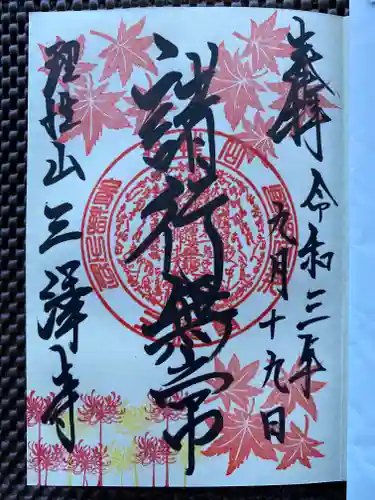 奉拝 令和三年
九月十九日
諸行無常
理性山三澤寺